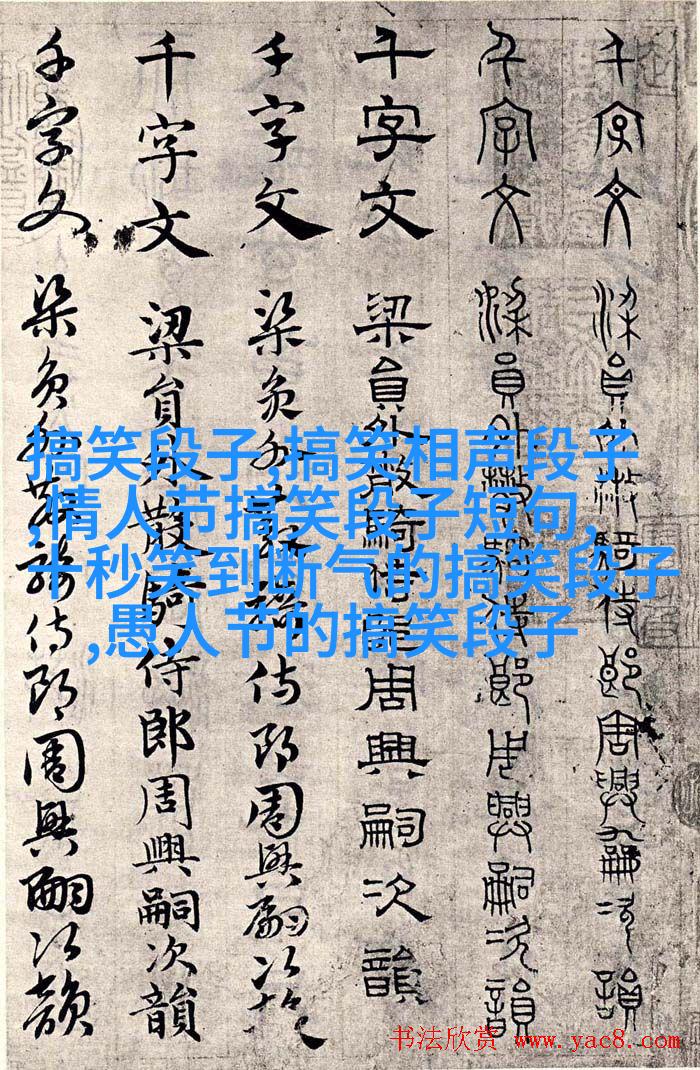 千字文 梁員外散騎侍郎周興嗣次韻
千字文 梁員外散騎侍郎周興嗣次韻
千字文 梁員外散騎侍郎周興嗣次韻
千字文 梁員外散騎侍郎周興嗣次韻
千字文 梁員外散騎侍郎周興嗣次韻
千字文 梁員外散騎侍郎周興嗣次韻
搞笑段子,搞笑相声段子
,情人节搞笑段子短句,
十秒笑到断气的搞笑段子
,愚人节的搞笑段子
书法欣赏 www.yac8.com